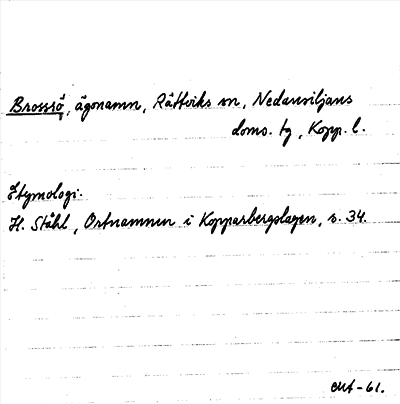 Brossrö, ägonamn, Rättviks sn, Nedansiljans
doms. tg, Kopp. l.
Etymologi:
H. Ståhl, Ortnamnen i Kopparbergslagen, s. 34.
-61.